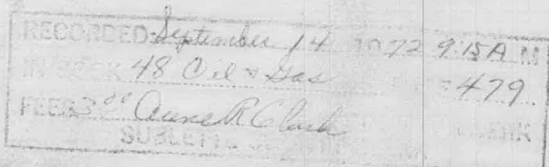 RECORDED September 14 1972 9:15 A M
IN BOOK 48 Oil & Gas 479
FEES 3 00 Anne R Clark CLERK
SUBLETTE